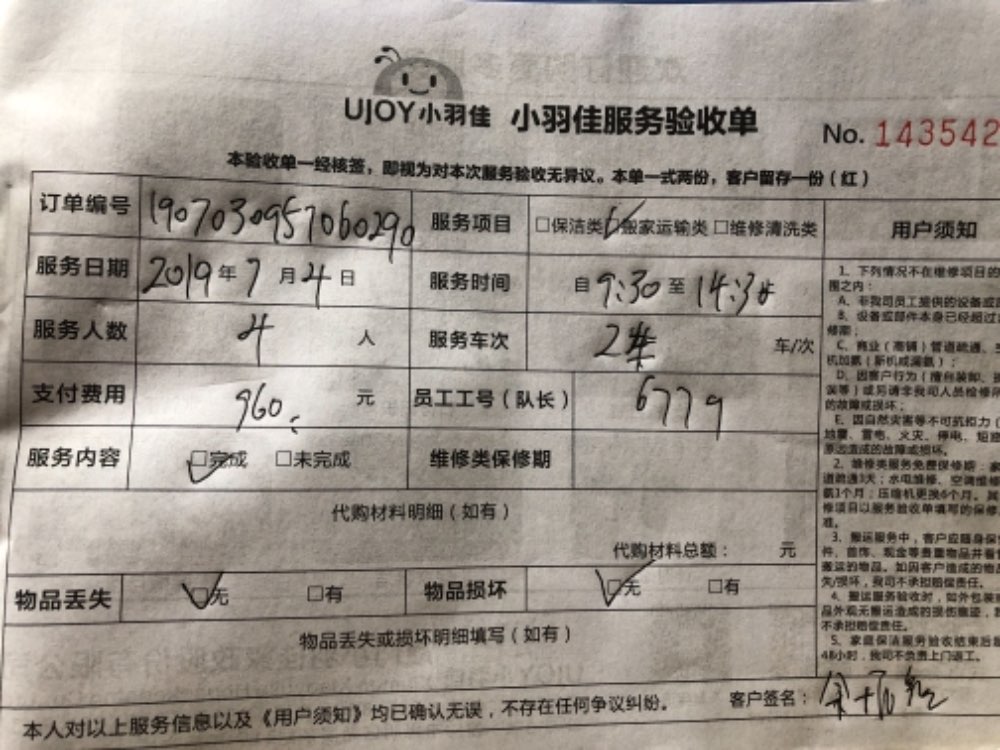 UJOY小羽佳 小羽佳服务验收单 No. 143542
本验收单一经核签,即视为对本次服务验收无异议。本单一式两份,客户留存一份(红)
订单编号 1907030957060290 服务项目 □保洁类 ☑搬家运输类 □维修清洗类
服务日期 2019年7月4日 服务时间 自9:30至14:30
服务人数 4 人 服务车次 2 车/次
支付费用 960 元 员工工号(队长) 6779
服务内容 ☑完成 □未完成 维修类保修期
代购材料明细(如有)
代购材料总额: 元
物品丢失 ☑无 □有 物品损坏 ☑无 □有
物品丢失或损坏明细填写(如有)
本人对以上服务信息以及《用户须知》均已确认无误,不存在任何争议纠纷。 客户签名:
用户须知
1、下列情况不在维修项目的
围之内:
A、非我司员工提供的设备或
B、设备或部件本身已经超过
修期;
C、商业(商铺)管道疏通、
机加氟(新机或漏氟);
D、因客户行为(擅自装卸、
误等)或另请非我司人员检修
的故障或损坏;
E、因自然灾害等不可抗拒力(
地震、雷电、火灾、停电、短
原因造成的故障或损坏。
2、维修类服务免费保修期:
道疏通3天;水电维修、空调维修
氟1个月;压缩机更换6个月。其
修项目以服务验收单填写的保修
准。
3、搬运服务中,客户应随身保
件、首饰、现金等贵重物品并看
搬运的物品。如因客户造成的物品
失/损坏,我司不承担赔偿责任。
4、搬运服务验收时,如外包装
品外观无搬运造成的损伤痕迹,
不承担赔偿责任。
5、家庭保洁服务验收结束后
48小时,我司不负责上门返工。